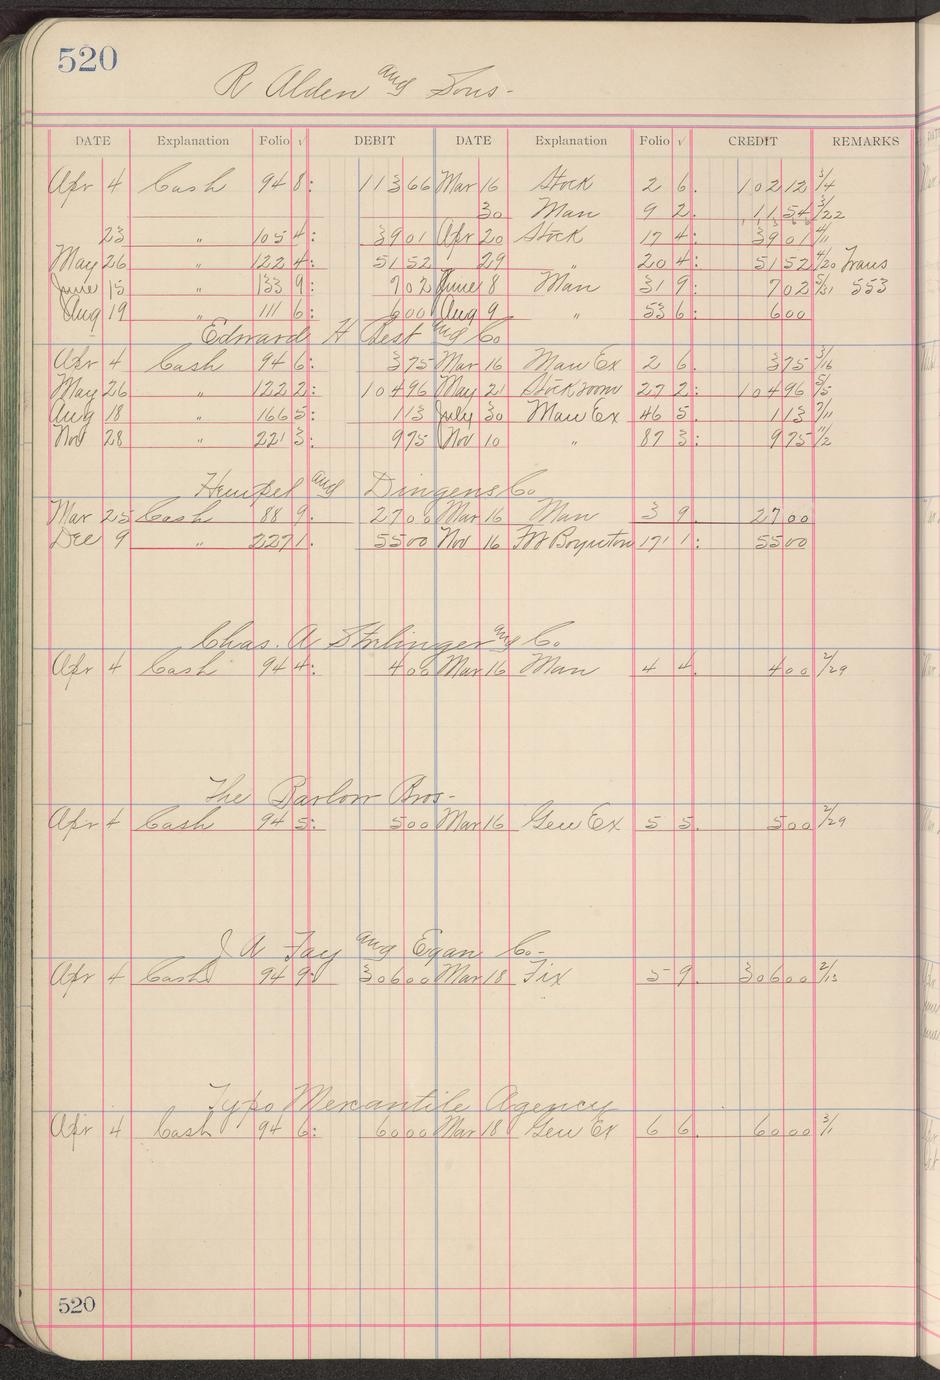 520
R Alden and Sons-
DATE Explanation Folio √ DEBIT DATE Explanation Folio √ CREDIT REMARKS
Apr 4 Cash 94 8: 113 66 Mar 16 Stock 2 6. 102 12 3/4
30 Man 9 2. 11 54 3/22
23 " 105 4: 39 01 Apr 20 Stock 17 4: 39 01 4/11
May 26 " 122 4: 51 52 29 " 20 4: 51 52 4/20 Trans
June 15 " 133 9: 7 02 June 8 Man 31 9: 7 02 5/31 553
Aug 19 " 111 6: 6 00 Aug 9 " 53 6: 6 00
Edward H Best and Co
Apr 4 Cash 94 6: 3 75 Mar 16 Man Ex 2 6. 3 75 3/16
May 26 " 122 2: 104 96 May 21 Stockroom 27 2: 104 96 5/5
Aug 18 " 166 5: 1 13 July 30 Man Ex 46 5. 1 13 7/11
Nov 28 " 221 3: 9 75 Nov 10 " 87 3: 9 75 11/2
and Dingens Co
Mar 25 Cash 88 9. 27 00 Mar 16 Man 3 9. 27 00
Dec 9 " 227 1. 55 00 Nov 16 Boynton 171 1: 55 00
Chas. A Strlinger and Co
Apr 4 Cash 94 4: 4 00 Mar 16 Man 4 4. 4 00 2/29
The Barlow Bros-
Apr 4 Cash 94 5: 5 00 Mar 16 Gen Ex 5 5. 5 00 2/29
J A Fay and Egan Co-
Apr 4 Cash 94 9: 306 00 Mar 18 Fix 5 9. 306 00 2/13
Typo Mercantile Agency
Apr 4 Cash 94 6: 60 00 Mar 18 Gen Ex 6 6. 60 00 3/1
520